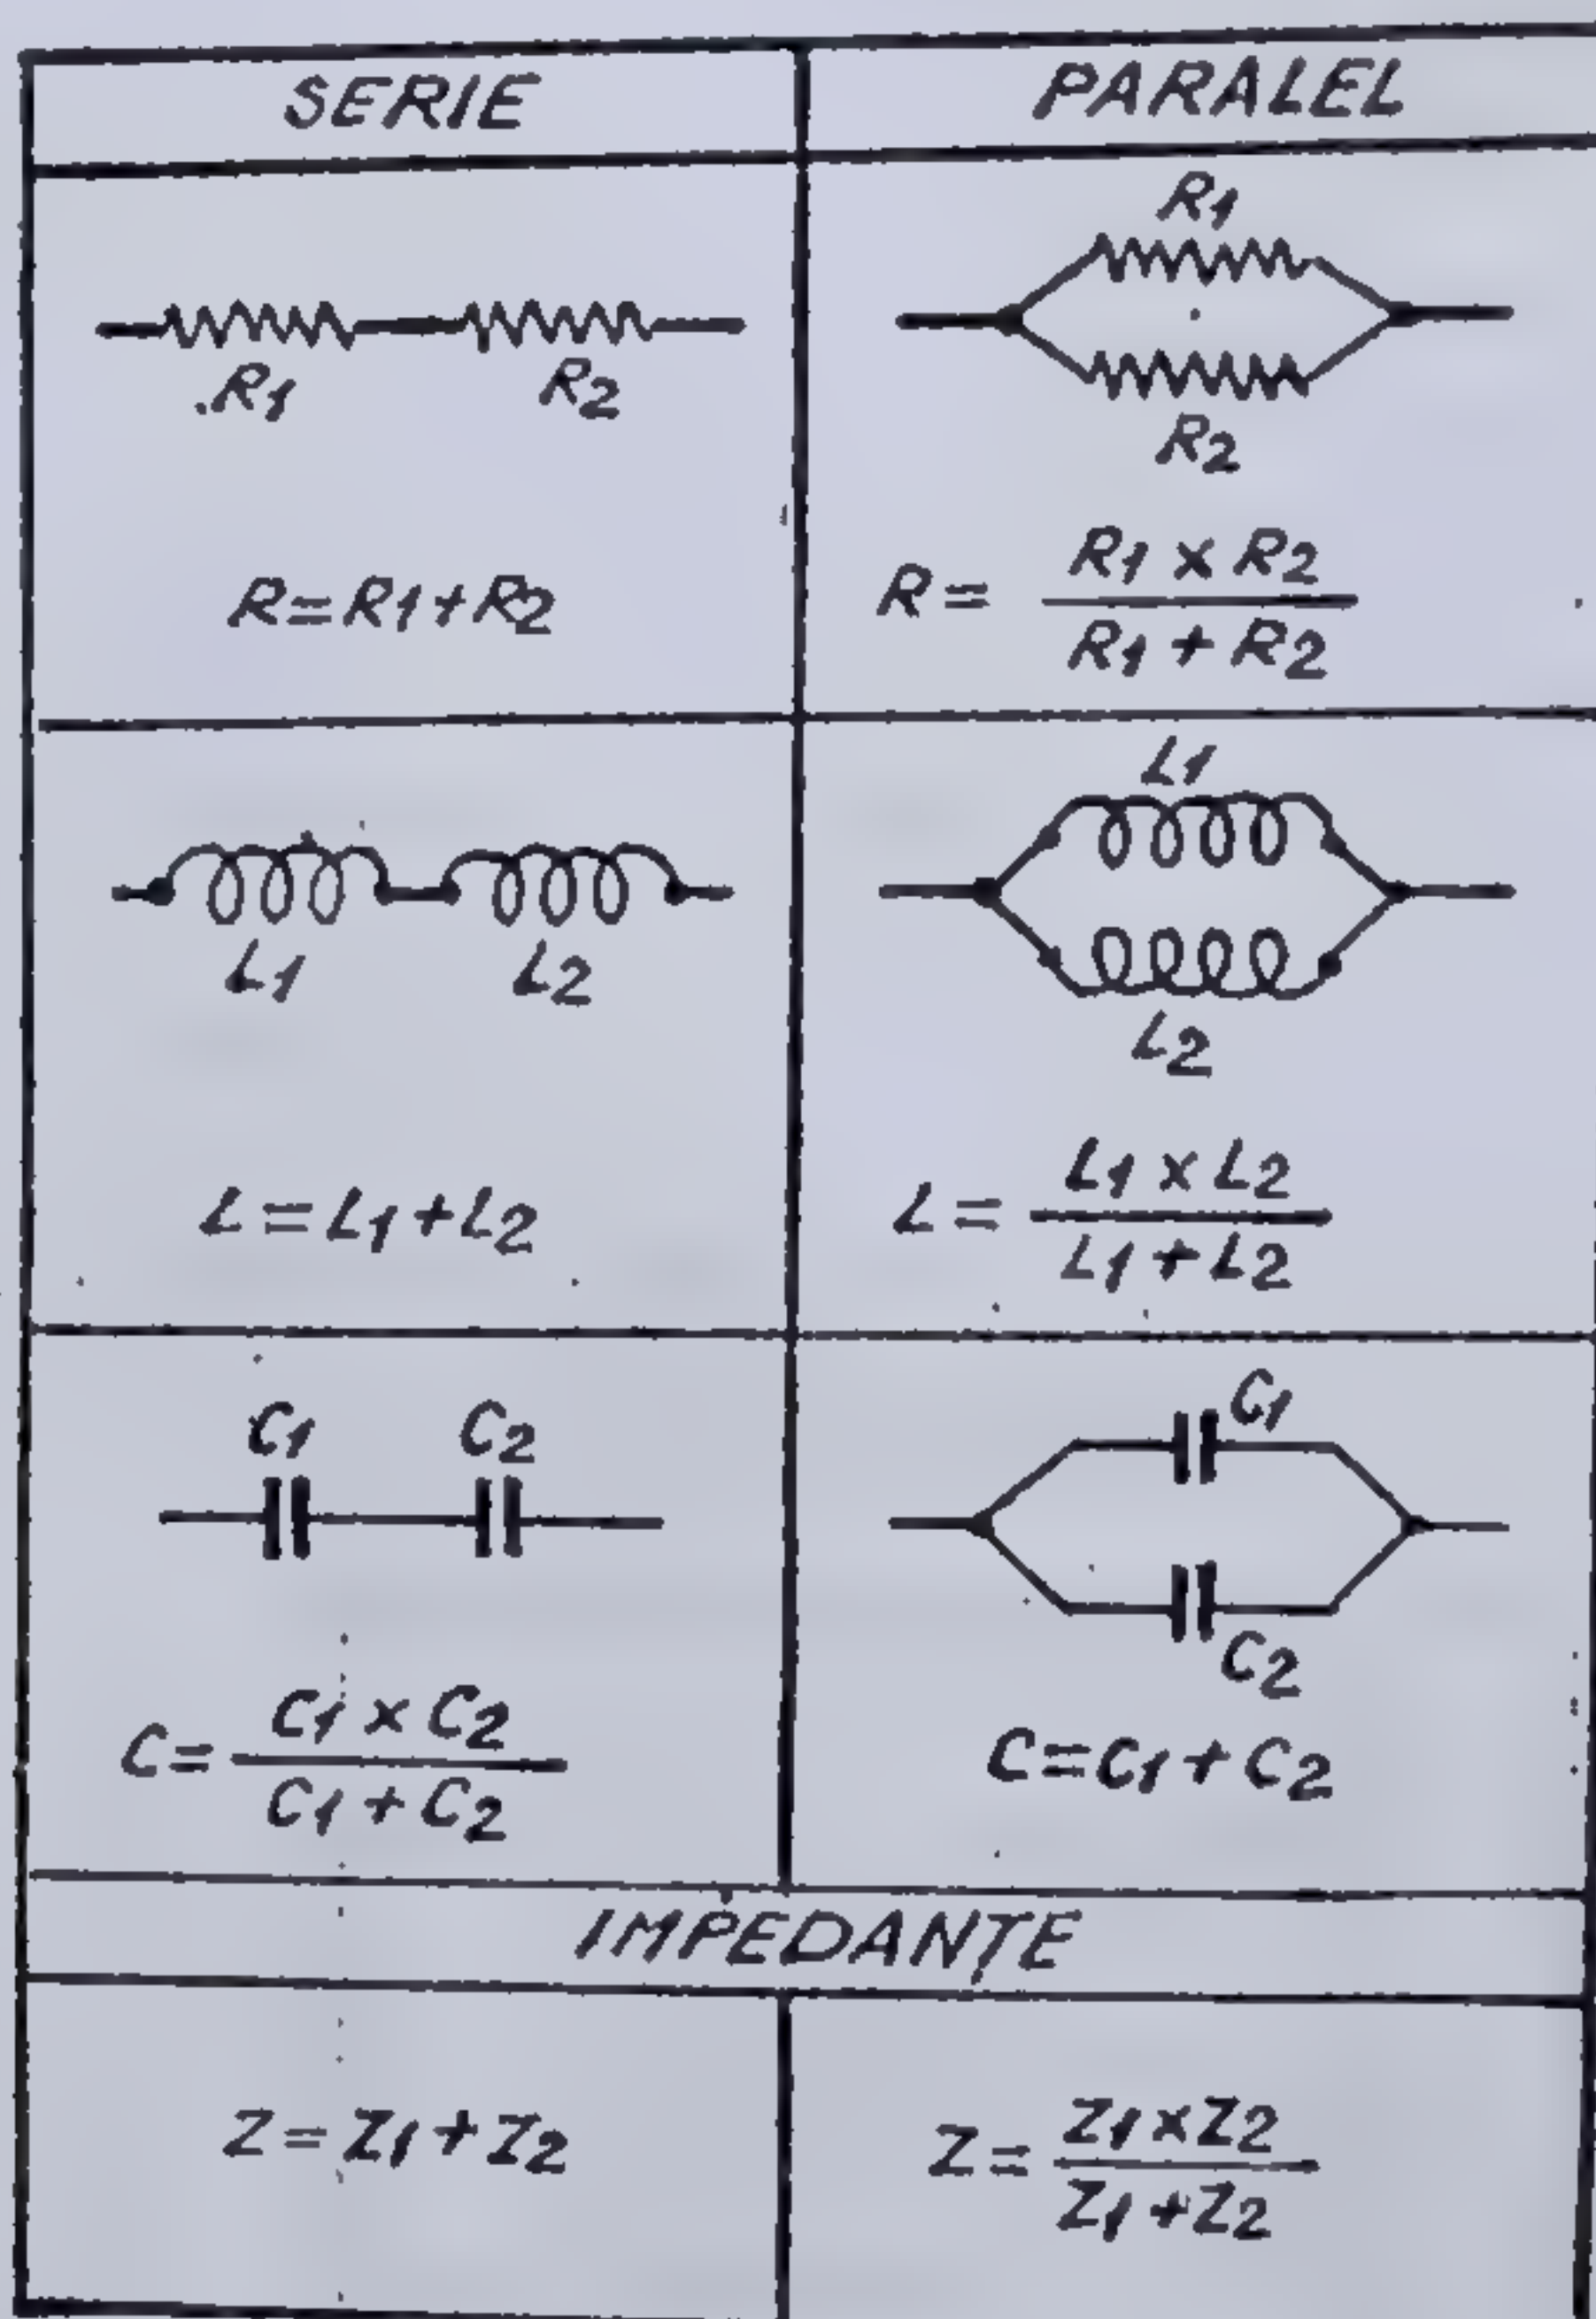 SERIE PARALEL
R1 R2
R1
R2
R=R1+R2
R= R1 x R2 / R1 + R2
L1 L2
L1
L2
L=L1+L2
L= L1 x L2 / L1+L2
C1 C2
C1
C2
C= C1 x C2 / C1+C2
C=C1+C2
IMPEDANȚE
Z=Z1+Z2
Z= Z1xZ2 / Z1+Z2